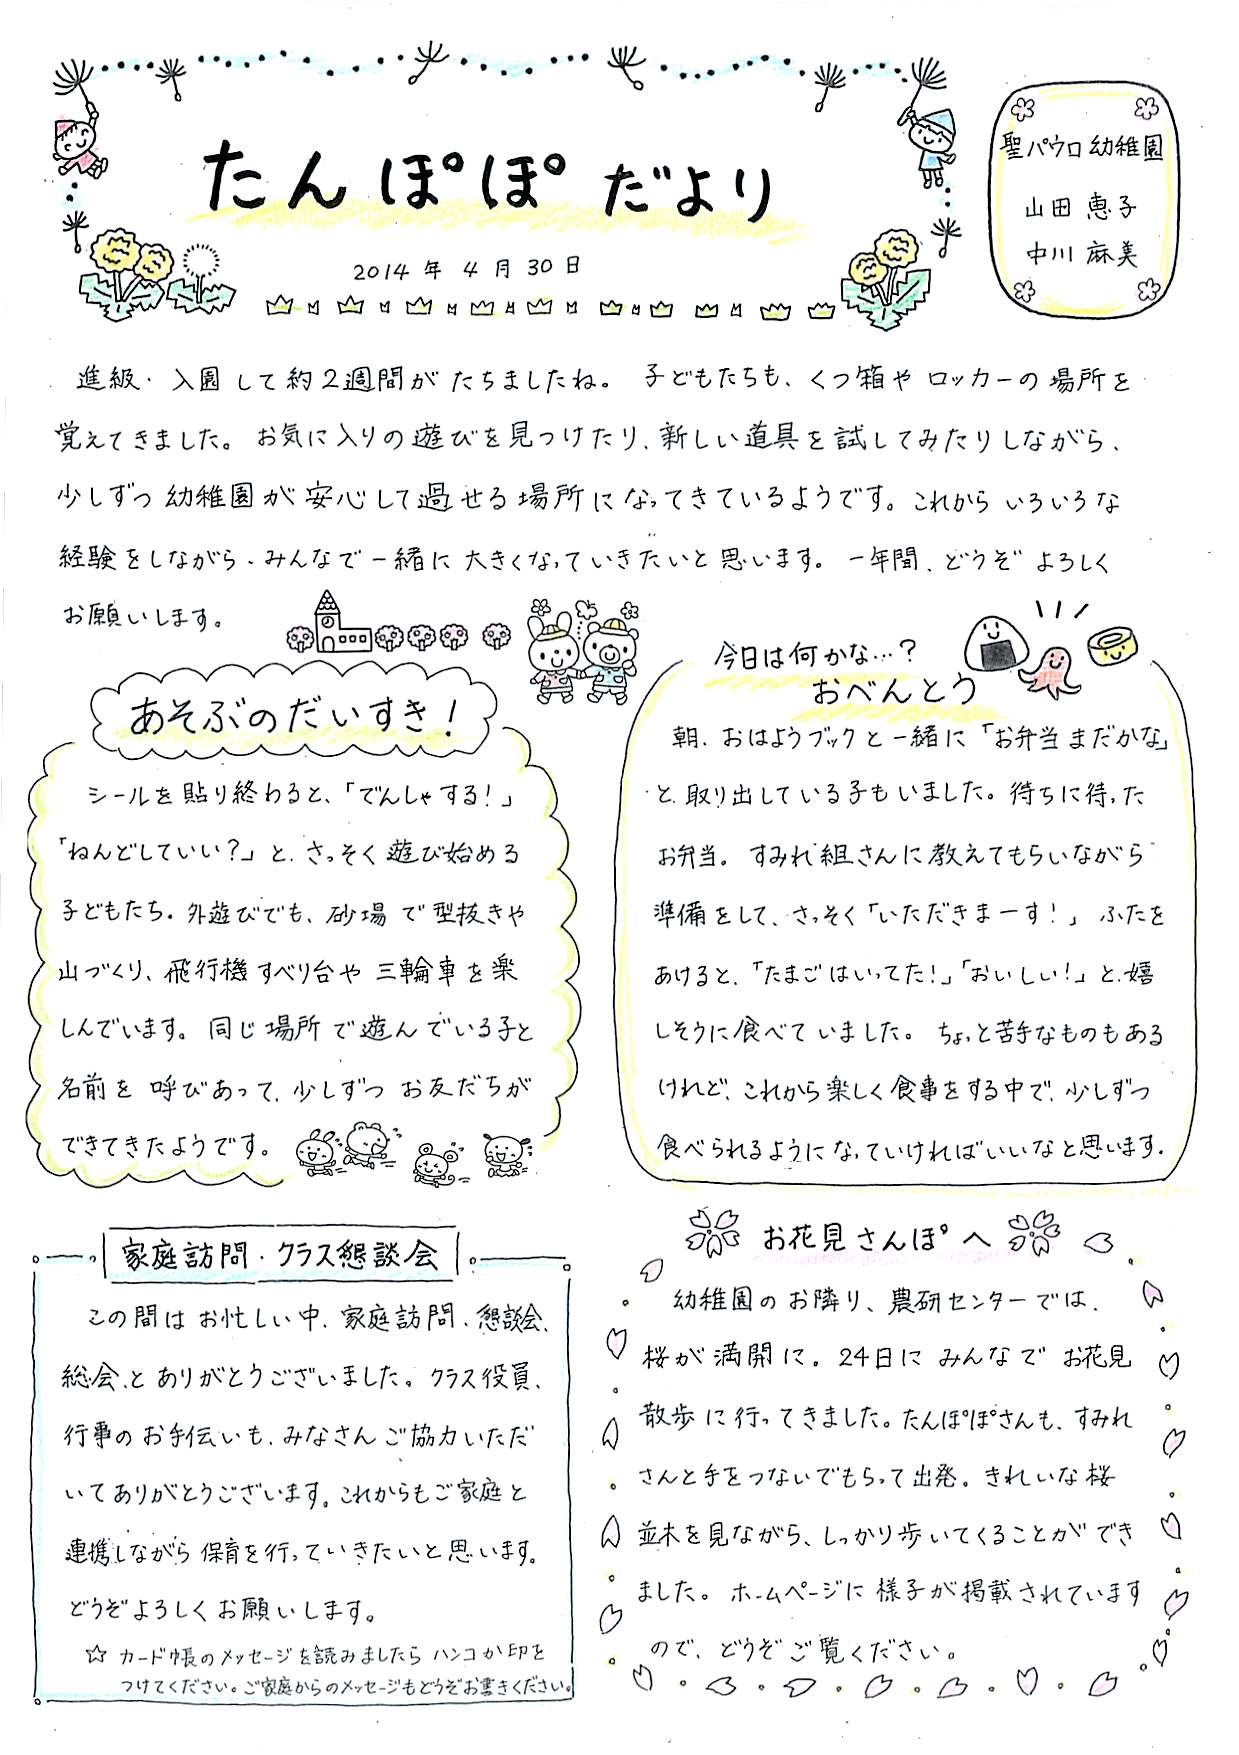 たんぽぽだより
2014年 4月 30日
聖パウロ幼稚園
山田 恵子
中川 麻美
進級・入園して約2週間がたちましたね。子どもたちも、くつ箱やロッカーの場所を
覚えてきました。お気に入りの遊びを見つけたり、新しい道具を試してみたりしながら、
少しずつ幼稚園が安心して過せる場所になってきているようです。これからいろいろな
経験をしながら、みんなで一緒に大きくなっていきたいと思います。一年間、どうぞよろしく
お願いします。
あそぶのだいすき!
シールを貼り終わると、「でんしゃする!」
「ねんどしていい?」と、さっそく遊び始める
子どもたち。外遊びでも、砂場で型抜きや
山づくり、飛行機すべり台や三輪車を楽
しんでいます。同じ場所で遊んでいる子と
名前を呼びあって、少しずつお友だちが
できてきたようです。
今日は何かな…?
おべんとう
朝、おはようブックと一緒に「お弁当まだかな」
と、取り出している子もいました。待ちに待った
お弁当。すみれ組さんに教えてもらいながら
準備をして、さっそく「いただきまーす!」ふたを
あけると、「たまごはいってた!」「おいしい!」と、嬉
しそうに食べていました。ちょっと苦手なものもある
けれど、これから楽しく食事をする中で、少しずつ
食べられるようになっていければいいなと思います。
家庭訪問・クラス懇談会
この間はお忙しい中、家庭訪問、懇談会、
総会、とありがとうございました。クラス役員、
行事のお手伝いも、みなさんご協力いただ
いてありがとうございます。これからもご家庭と
連携しながら保育を行っていきたいと思います。
どうぞよろしくお願いします。
☆ カード帳のメッセージを読みましたらハンコか印を
つけてください。ご家庭からのメッセージもどうぞお書きください。
お花見さんぽへ
幼稚園のお隣り、農研センターでは、
桜が満開に。24日にみんなでお花見
散歩に行ってきました。たんぽぽさんも、すみれ
さんと手をつないでもらって出発。きれいな桜
並木を見ながら、しっかり歩いてくることができ
ました。ホームページに様子が掲載されています
ので、どうぞご覧ください。